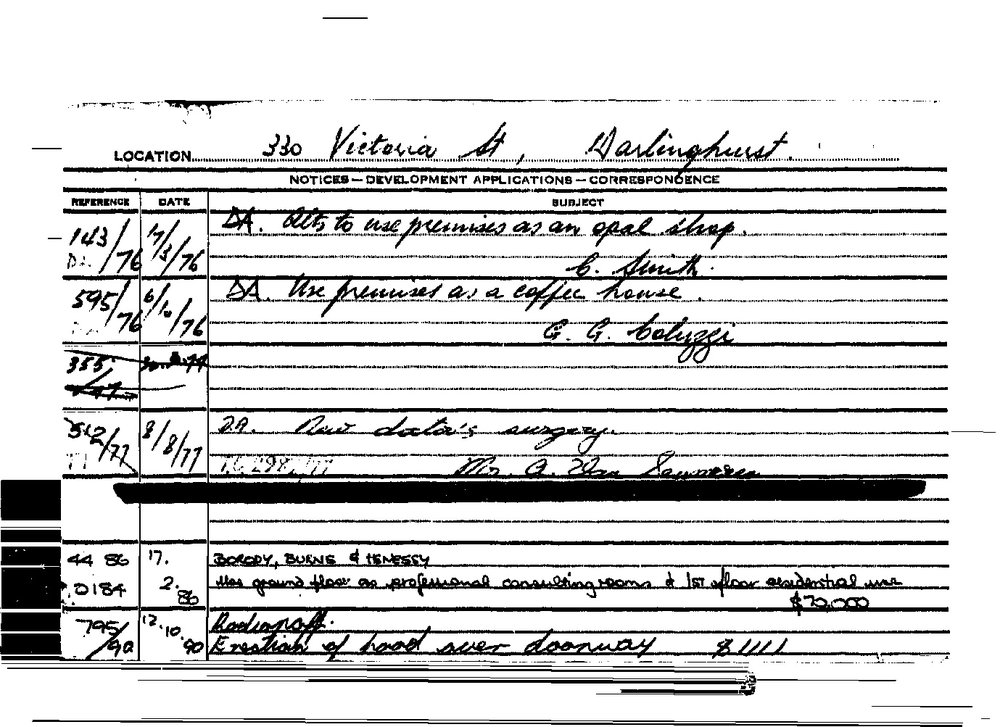 LOCATION 330 Victoria St, Darlinghurst.
NOTICES—DEVELOPMENT APPLICATIONS—CORRESPONDENCE
REFERENCE DATE SUBJECT
143/76 17/3/76 DA. Alts to use premises as an opal shop.
C. Smith.
595/76 6/10/76 DA. Use premises as a coffee house.
G. G. Coluzzi
355
512/77 8/8/77 D.A. New doctor's surgery.
Mr. A. Van
44 86 17. BORODY, BURNS & HENESSY
0184 2. 86 Use ground floor as professional consulting rooms & 1ST floor residential use
$70,000
795/90 12.10.90
Erection of hood over doorway $1111